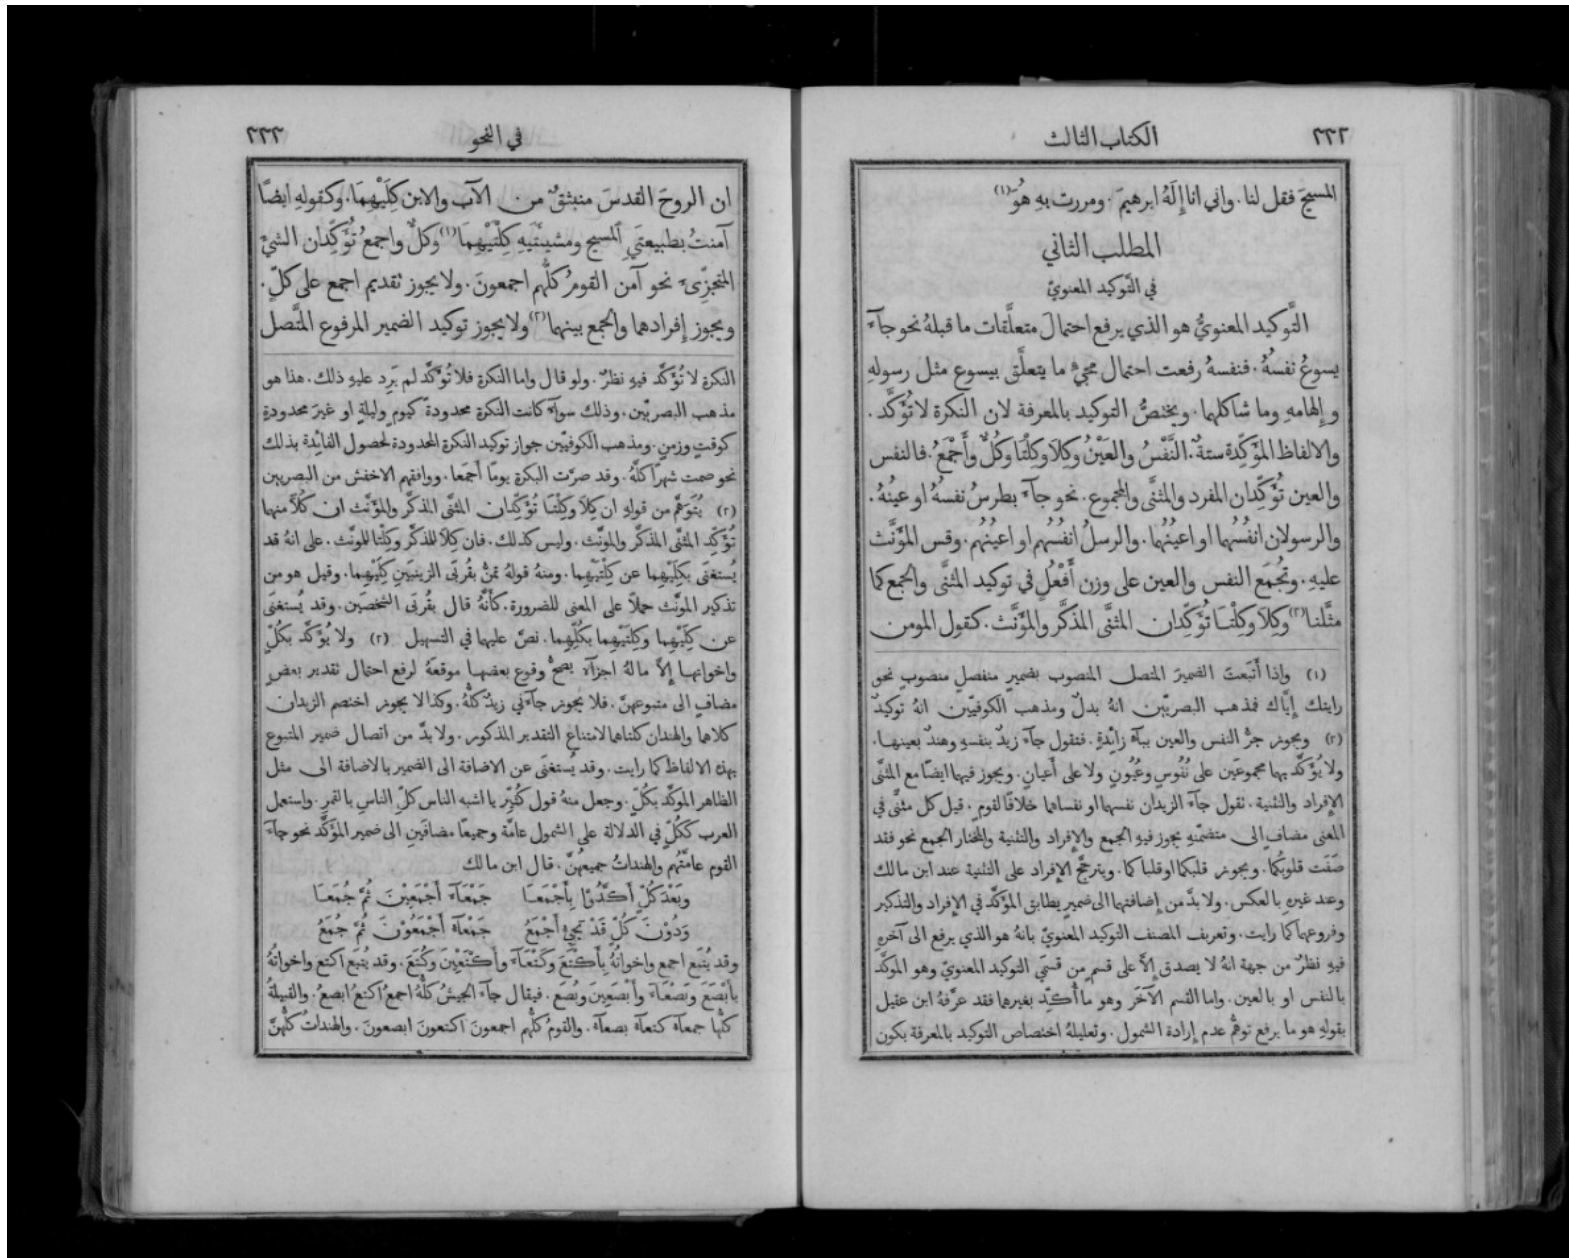 ٢٢٢
الكتاب الثالث
المسيحَ فقل لنا. واني انا إِلَهُ ابرهيمَ. ومررت بهِ هُوَ(١)
المطلب الثاني
في التَّوكيد المعنويّ
التَّوكيد المعنويُّ هو الذي يرفع احتمالَ متعلَّقات ما قبلهُ نحو جآءَ
يسوعُ نفسُهُ. فنفسهُ رفعت احتمال مجيءِ ما يتعلَّق بيسوع مثل رسولهِ
وإلهامهِ وما شاكلهما. ويختصُّ التوكيد بالمعرفة لان النكرة لا تُؤَكَّد.
والالفاظ المؤَكِّدة ستةٌ. النَّفْسُ والعَيْنُ وكِلَا وكِلْتَا وكُلٌّ وأَجْمَعُ. فالنفس
والعين تُؤَكِّدان المفرد والمثنَّى والمجموع. نحو جآءَ بطرسُ نفسُهُ او عينُهُ.
والرسولان انفُسُهما او اعينُهُما. والرسلُ انفُسُهم او اعينُهُم. وقس المؤَنَّث
عليهِ. وتُجمَع النفس والعين على وزن أَفْعُلٍ في توكيد المثنَّى والجمع كما
مثَّلنا(٢) وكِلَا وكِلْتَا تُؤَكِّدان المثنَّى المذكَّر والمؤَنَّث. كقول المومن
(١) واذا أَتبَعتَ الضميرَ المتصل المنصوب بضميرٍ منفصلٍ منصوبٍ نحو
رايتك إِيَّاك فمذهب البصريّين انهُ بدلٌ ومذهب الكوفيّين انهُ توكيدٌ
(٢) ويجوز جرُّ النفس والعين ببآءٍ زائِدةٍ. فتقول جآءَ زيدٌ بنفسهِ وهندٌ بعينها.
ولا يُؤَكَّد بهما مجموعَين على نُفُوسٍ وعُيُونٍ ولا على أَعيانٍ. ويجوز فيهما ايضًا مع المثنَّى
الإِفراد والتثنية. تقول جآءَ الزيدان نفسهما او نفساهما خلافًا لقوم. قيل كل مثنًّى في
المعنى مضافٍ الى متضمّنهِ يجوز فيهِ الجمع والإِفراد والتثنية والمختار الجمع نحو فقد
صَغَت قلوبُكُما. ويجوز قلبكما او قلباكما. ويترجَّح الإِفراد على التثنية عند ابن مالك
وعند غيرهِ بالعكس. ولا بدَّ من إِضافتهما الى ضميرٍ يطابق المؤَكَّد في الإِفراد والتذكير
وفروعهما كما رايت. وتعريف المصنف التوكيد المعنويّ بانهُ هو الذي يرفع الى آخرهِ
فيهِ نظرٌ من جهة انهُ لا يصدق إِلَّا على قسمٍ من قسمَي التوكيد المعنويّ وهو الموكَّد
بالنفس او بالعين. واما القسم الآخَر وهو ما أُكِّدِ بغيرهما فقد عرَّفهُ ابن عقيل
بقولهِ هو ما يرفع توهُّم عدم إِرادة الشمول. وتعليلهُ اختصاص التوكيد بالمعرفة بكون
٢٢٣
في النحو
ان الروحَ القدسَ منبثقٌ من الآب والابن كِلَيْهِمَا. وكقولهِ ايضًا
آمنتُ بطبيعتَيِ المسيح ومشيئَتَيهِ كِلْتَيْهِمَا(١) وكلٌّ واجمعُ تُؤَكِّدان الشيَّ
المتجزّىءَ نحو آمن القومُ كلُّهم اجمعونَ. ولا يجوز تقديم اجمع على كلٍّ.
ويجوز إفرادهما والجمع بينهما(٢) ولا يجوز توكيد الضمير المرفوع المتَّصل
النكرة لا تُؤَكَّد فيهِ نظرٌ. ولو قال واما النكرة فلا تُؤَكَّد لم يَرِد عليهِ ذلك. هذا هو
مذهب البصريّين. وذلك سوآءٌ كانت النكرة محدودةً كيومٍ وليلةٍ او غيرَ محدودةٍ
كوقتٍ وزمنٍ. ومذهب الكوفيّين جواز توكيد النكرة المحدودة لحصول الفائِدة بذلك
نحو صمت شهرًا كلَّهُ. وقد صرَّت البكرة يومًا أَجمَعا. ووافقهم الاخفش من البصريين
(٢) يُتَوهَّم من قولهِ ان كِلَا وكِلْتَا تُؤَكِّدان المثنَّى المذكَّر والمؤَنَّث ان كُلًّا منهما
تُؤَكِّد المثنَّى المذكَّر والمونَّث. وليس كذلك. فان كِلَا للمذكَّر وكِلْتا للمونَّث. على انهُ قد
يُستغنَى بكِلَيْهِما عن كِلْتَيْهِما. ومنهُ قولهُ تمنُّ بقُربَى الزينبَينِ كِلَيْهِما. وقيل هو من
تذكير المونَّث حملًا على المعنى للضرورة. كأَنَّهُ قال بقُربَى الشخصَين. وقد يُستغنَى
عن كِلَيْهِما وكِلتَيْهِما بكُلِّهِما. نصّ عليهما في التسهيل (٢) ولا يُؤَكَّد بكُلٍّ
واخواتها إِلَّا ما لهُ اجزآءٌ يصحُّ وقوع بعضها موقعهُ لرفع احتمال تقدير بعضٍ
مضافٍ الى متبوعهنَّ. فلا يجوز جآءَني زيدٌ كلُّهُ. وكذا لا يجوز اختصم الزيدان
كلاهما والهندان كلتاهما لامتناع التقدير المذكور. ولا بدَّ من اتصال ضمير المتبوع
بهذهِ الالفاظ كما رايت. وقد يُستغنَى عن الاضافة الى الضمير بالاضافة الى مثل
الظاهر الموكَّد بكُلٍّ. وجعل منهُ قول كُثيّر يا اشبه الناس كلِّ الناسِ بالقمرِ. واستعمل
العرب ككُلٍّ في الدلالة على الشمول عامَّة وجميعًا مضافَينِ الى ضمير المؤَكَّد نحو جآءَ
القوم عامَّتُهُم والهنداتُ جميعُهُنَّ. قال ابن مالك
وَبَعْدَ كُلٍّ أَكَّدُوْا بِأَجْمَعَا جَمْعَآءَ أَجْمَعِيْنَ ثُمَّ جُمَعَا
وَدُوْنَ كُلٍّ قَدْ يَجِيْءُ أَجْمَعُ جَمْعَآءُ أَجْمَعُوْنَ ثُمَّ جُمَعُ
وقد يُتبَع اجمع واخواتُهُ بأَكْتَعَ وكَتْعَآءَ وأَكْتَعِيْنَ وكُتَعَ. وقد يُتبَع اكتع واخواتهُ
بأَبْصَعَ وبَصْعَآءَ وأَبْصَعِينَ وبُصَعَ. فيقال جآءَ الجيشُ كلُّهُ اجمعُ اكتعُ ابصعُ. والقبيلةُ
كلُّها جمعآءُ كتعآءُ بصعآءُ. والقومُ كلُّهم اجمعونَ اكتعونَ ابصعونَ. والهنداتُ كلُّهنَّ